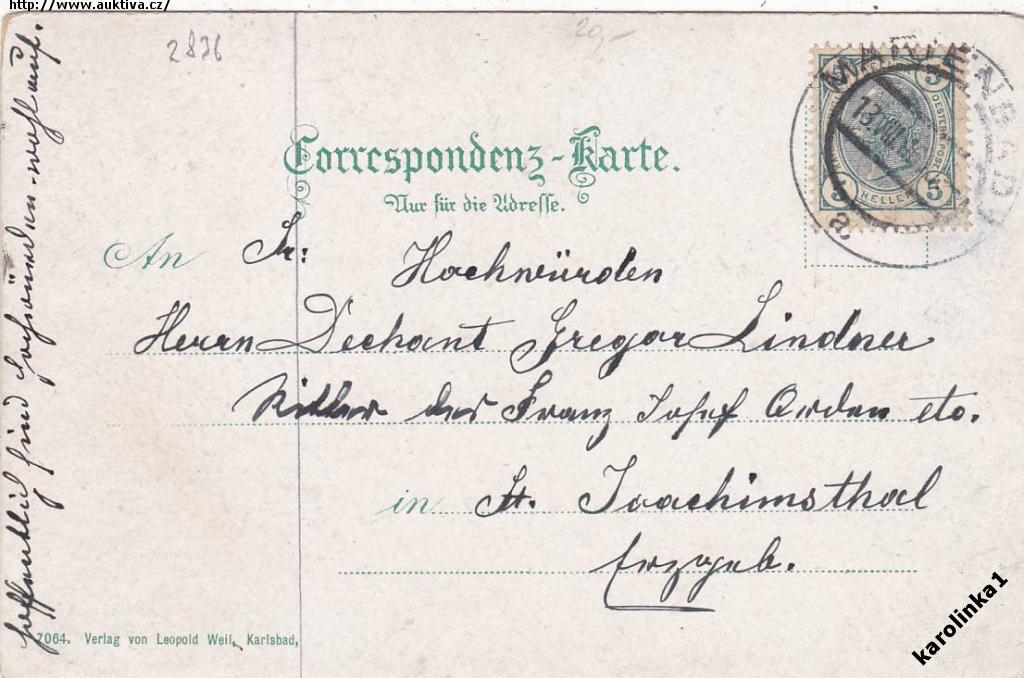 http://www.auktiva.cz/
2836
20,-
MARIENBAD
13
a
5 5
OESTERR.POST
5 HELLER 5
Correspondenz-Karte.
Nur für die Adresse.
An Sr: Hochwürden
Herrn Dechant Gregor Lindner
Ritter des Franz Josef Orden etc.
in St. Joachimsthal
Erzgeb.
hoffentlich sind Hochwürden wohlauf.
7064. Verlag von Leopold Weil, Karlsbad,
karolinka1